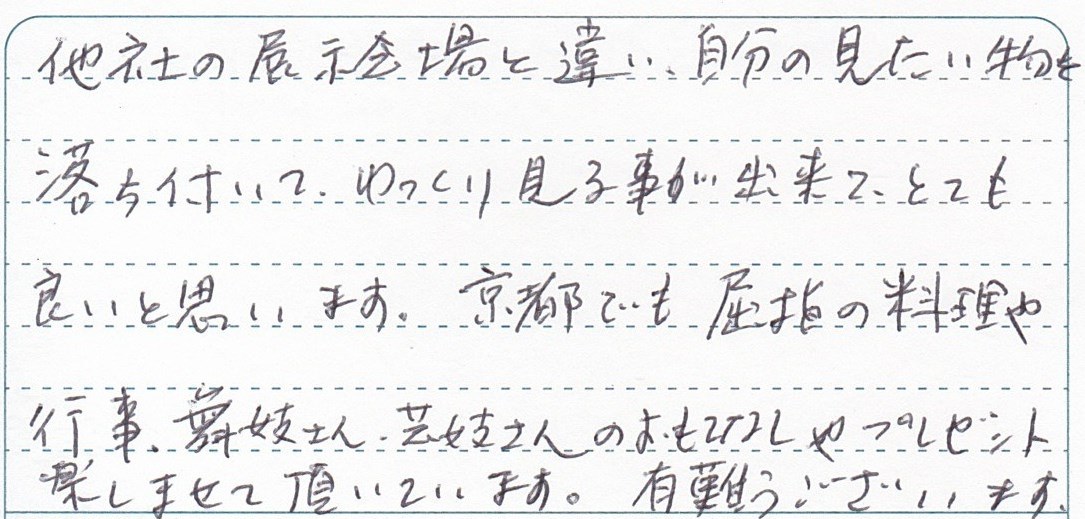 他社の展示会場と違い、自分の見たい物を
落ち付いて、ゆっくり見る事が出来て、とても
良いと思います。京都でも屈指の料理や
行事、舞妓さん、芸妓さんのおもてなしやプレゼント
楽しませて頂いています。有難うございます。